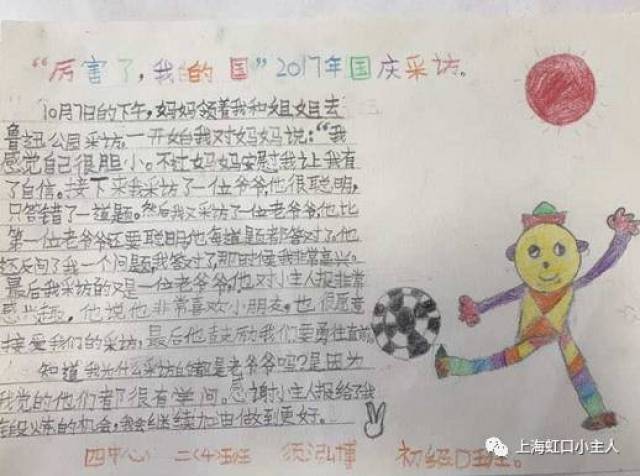 “厉害了，我的国”2017年国庆采访。
10月7日的下午，妈妈领着我和姐姐去
鲁迅公园采访。一开始我对妈妈说：“我
感觉自己很胆小。不过妈妈安慰我让我有
了自信。接下来我采访了一位爷爷，他很聪明，
只答错了一道题。然后我又采访了一位老爷爷，他比
第一位老爷爷还要聪明，他每道题都答对了。他
还反问了我一个问题，我答对了，那时候我非常高兴。
最后我采访的又是一位老爷爷，他对小主人报非常
感兴趣，他说他非常喜欢小朋友，也很愿意
接受我们的采访，最后他鼓励我们要勇往直前。
知道我为什么采访的都是老爷爷吗？是因为
我觉的他们都很有学问。感谢小主人报给了我
锻炼的机会，我会继续加油做到更好。
四中心 二(4)班 须泓博 初级口班。
上海虹口小主人